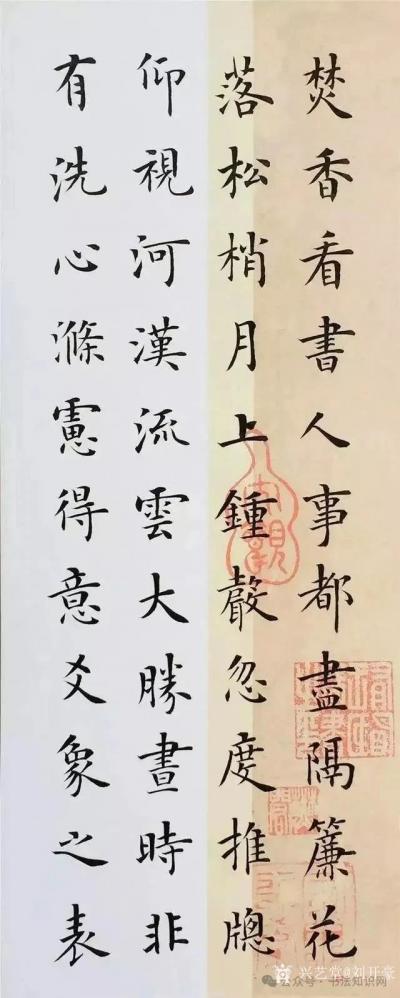 焚香看書人事都盡隔簾花
落松梢月上鍾聲忽度推牕
仰視河漢流雲大勝晝時非
有洗心滌慮得意爻象之表
兴艺堂@刘开豪
公众号·书法知识网